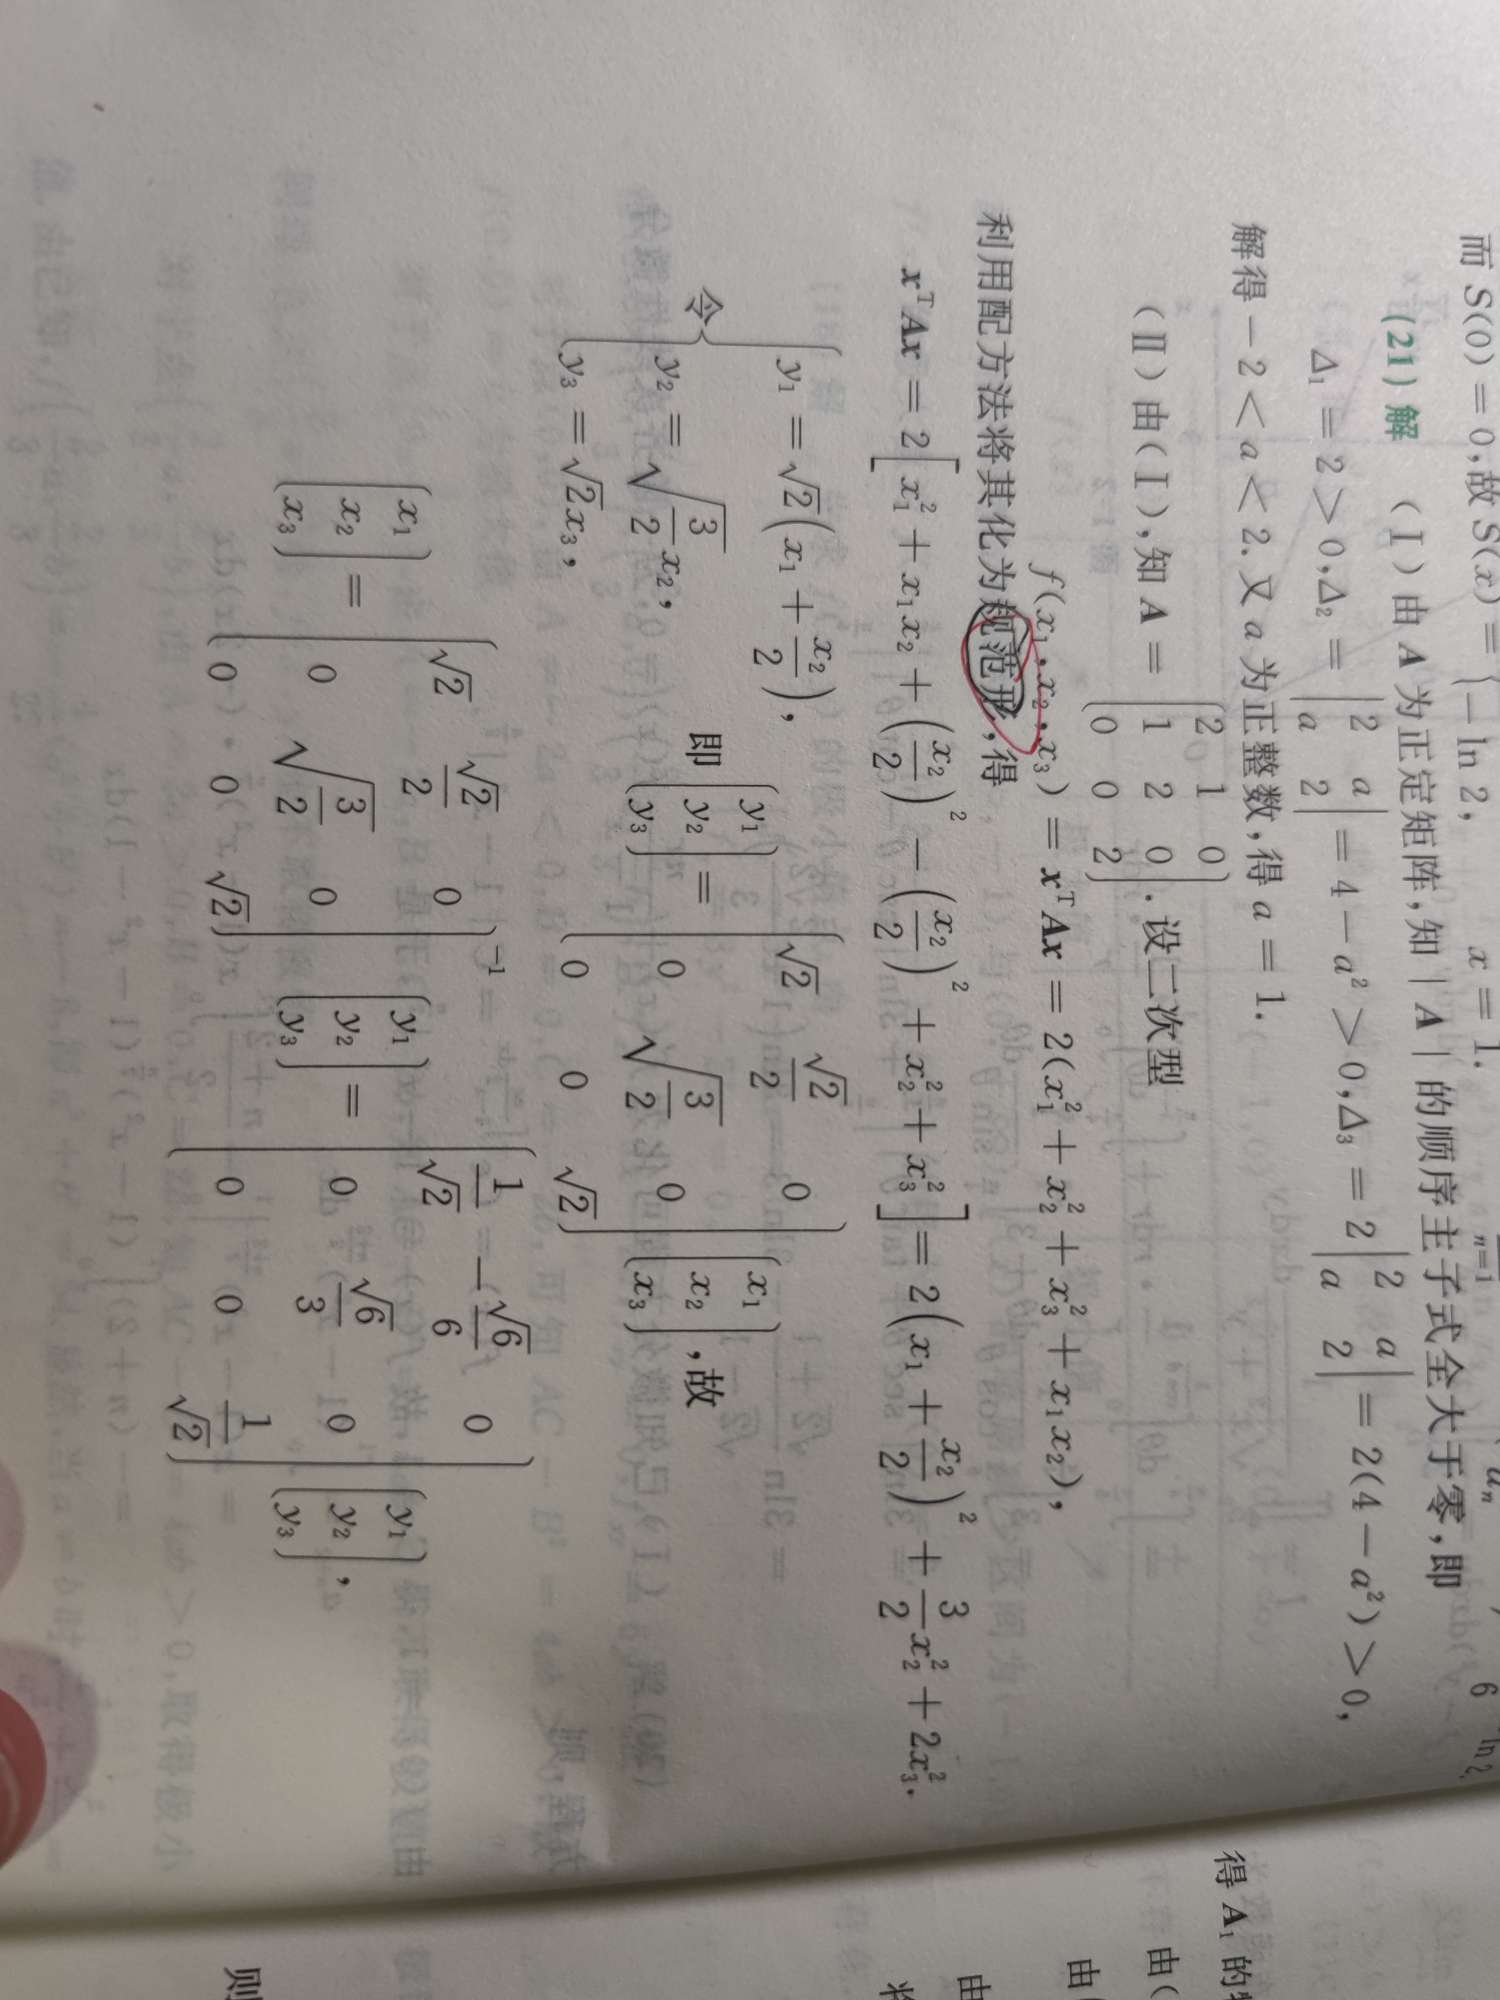 而 S(0) = 0,故 S(x) = { -ln 2, x = 1.
(21) 解 (Ⅰ)由 A 为正定矩阵,知 | A | 的顺序主子式全大于零,即
Δ₁ = 2 > 0,Δ₂ = | 2 a ; a 2 | = 4 - a² > 0,Δ₃ = 2 | 2 a ; a 2 | = 2(4 - a²) > 0,
解得 - 2 < a < 2. 又 a 为正整数,得 a = 1.
(Ⅱ)由(Ⅰ),知 A = ( 2 1 0 ; 1 2 0 ; 0 0 2 ). 设二次型
f(x₁,x₂,x₃) = xᵀAx = 2(x₁² + x₂² + x₃² + x₁x₂),
利用配方法将其化为规范形,得
xᵀAx = 2[x₁² + x₁x₂ + (x₂/2)² - (x₂/2)² + x₂² + x₃²] = 2(x₁ + x₂/2)² + 3/2 x₂² + 2x₃².
令 { y₁ = √2(x₁ + x₂/2), y₂ = √(3/2) x₂, y₃ = √2x₃, 即 ( y₁ ; y₂ ; y₃ ) = ( √2 √2/2 0 ; 0 √(3/2) 0 ; 0 0 √2 ) ( x₁ ; x₂ ; x₃ ),故
( x₁ ; x₂ ; x₃ ) = ( √2 √2/2 0 ; 0 √(3/2) 0 ; 0 0 √2 )⁻¹ ( y₁ ; y₂ ; y₃ ) = ( 1/√2 -√6/6 0 ; 0 √6/3 0 ; 0 0 1/√2 ) ( y₁ ; y₂ ; y₃ ),
得 A₁ 的
由(
由(
由
则